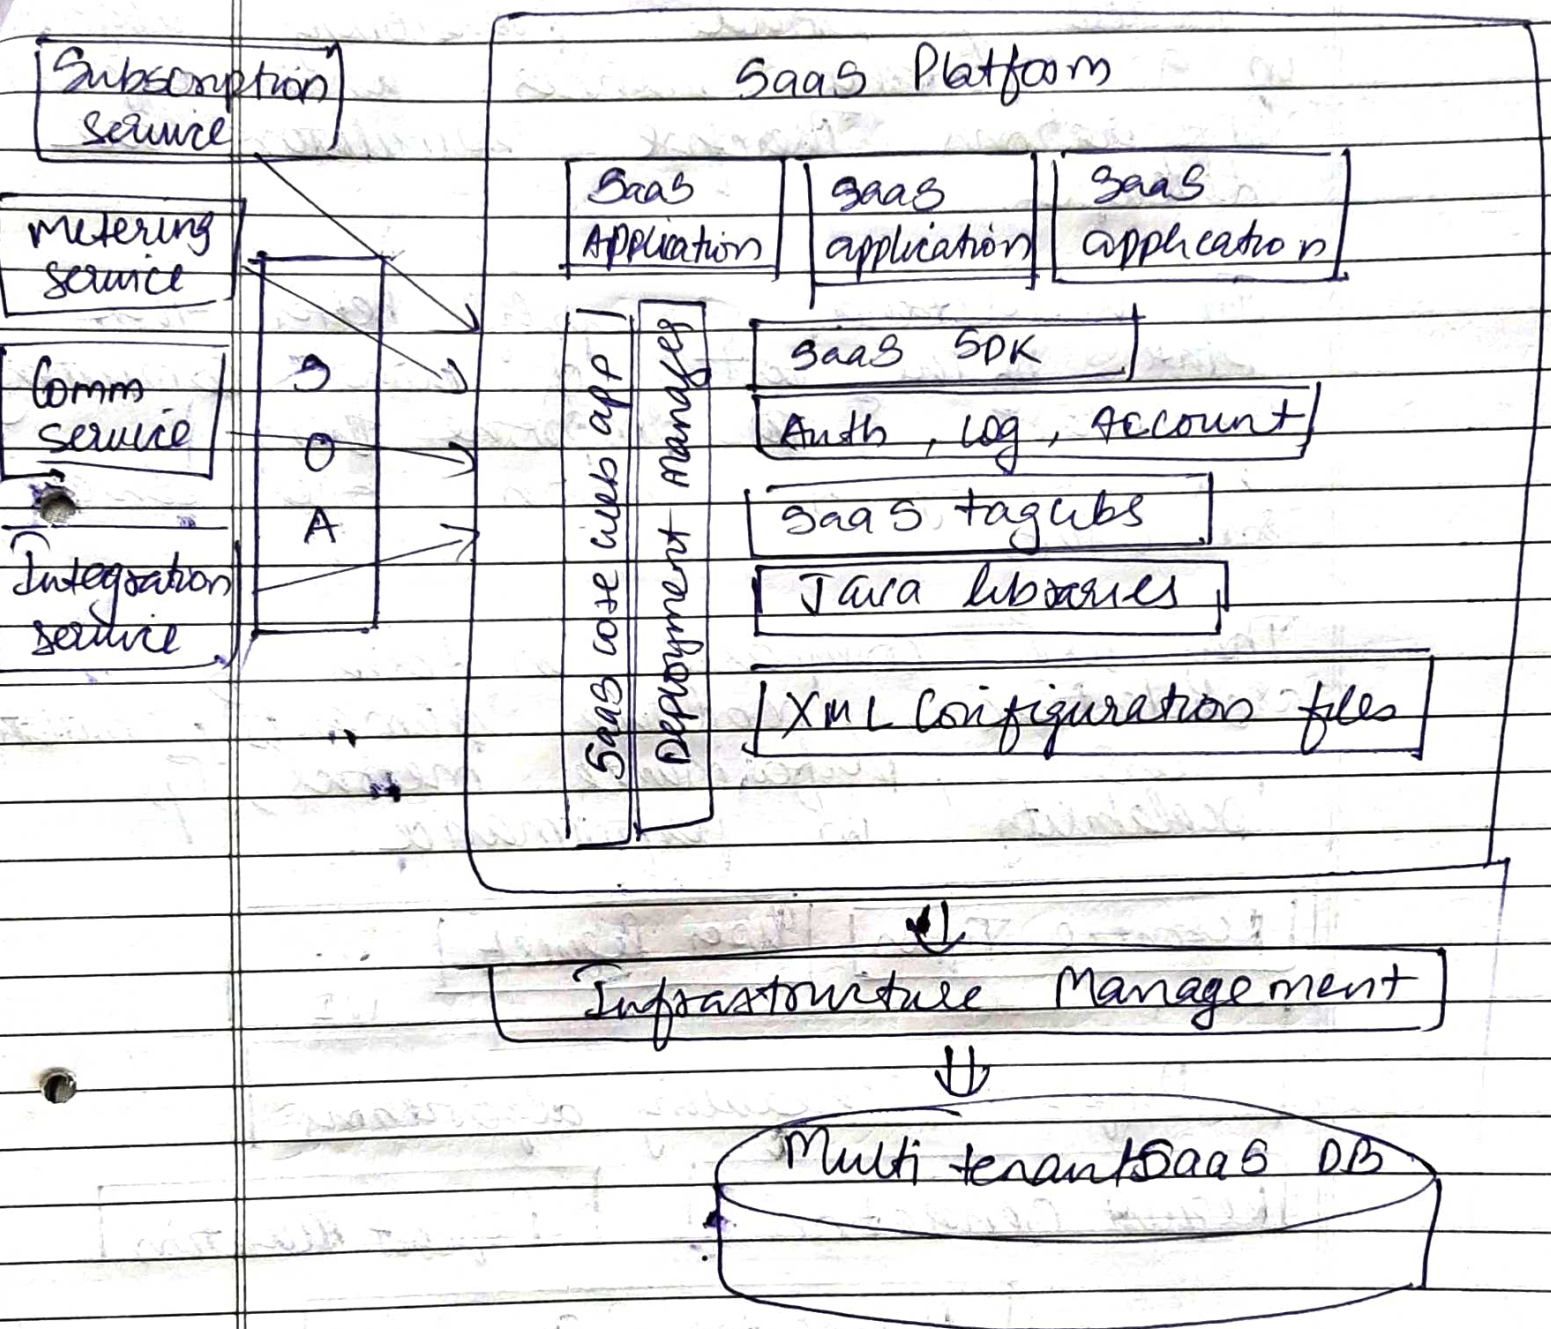 Subscription
service
Metering
service
Comm
service
Integration
service
S
O
A
SaaS Platform
SaaS
Application
SaaS
application
SaaS
application
SaaS core web app
Deployment Manager
SaaS SDK
Auth , Log , Account
SaaS taglibs
Java libraries
XML Configuration files
Infrastructure Management
Multi tenant SaaS DB